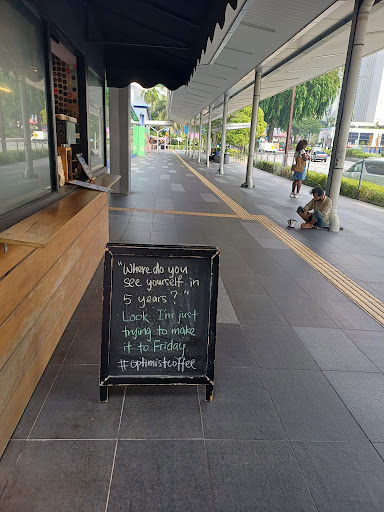 "Where do you
see yourself in
5 years?"
Look I'm just
trying to make
it to Friday
#optimistcoffee